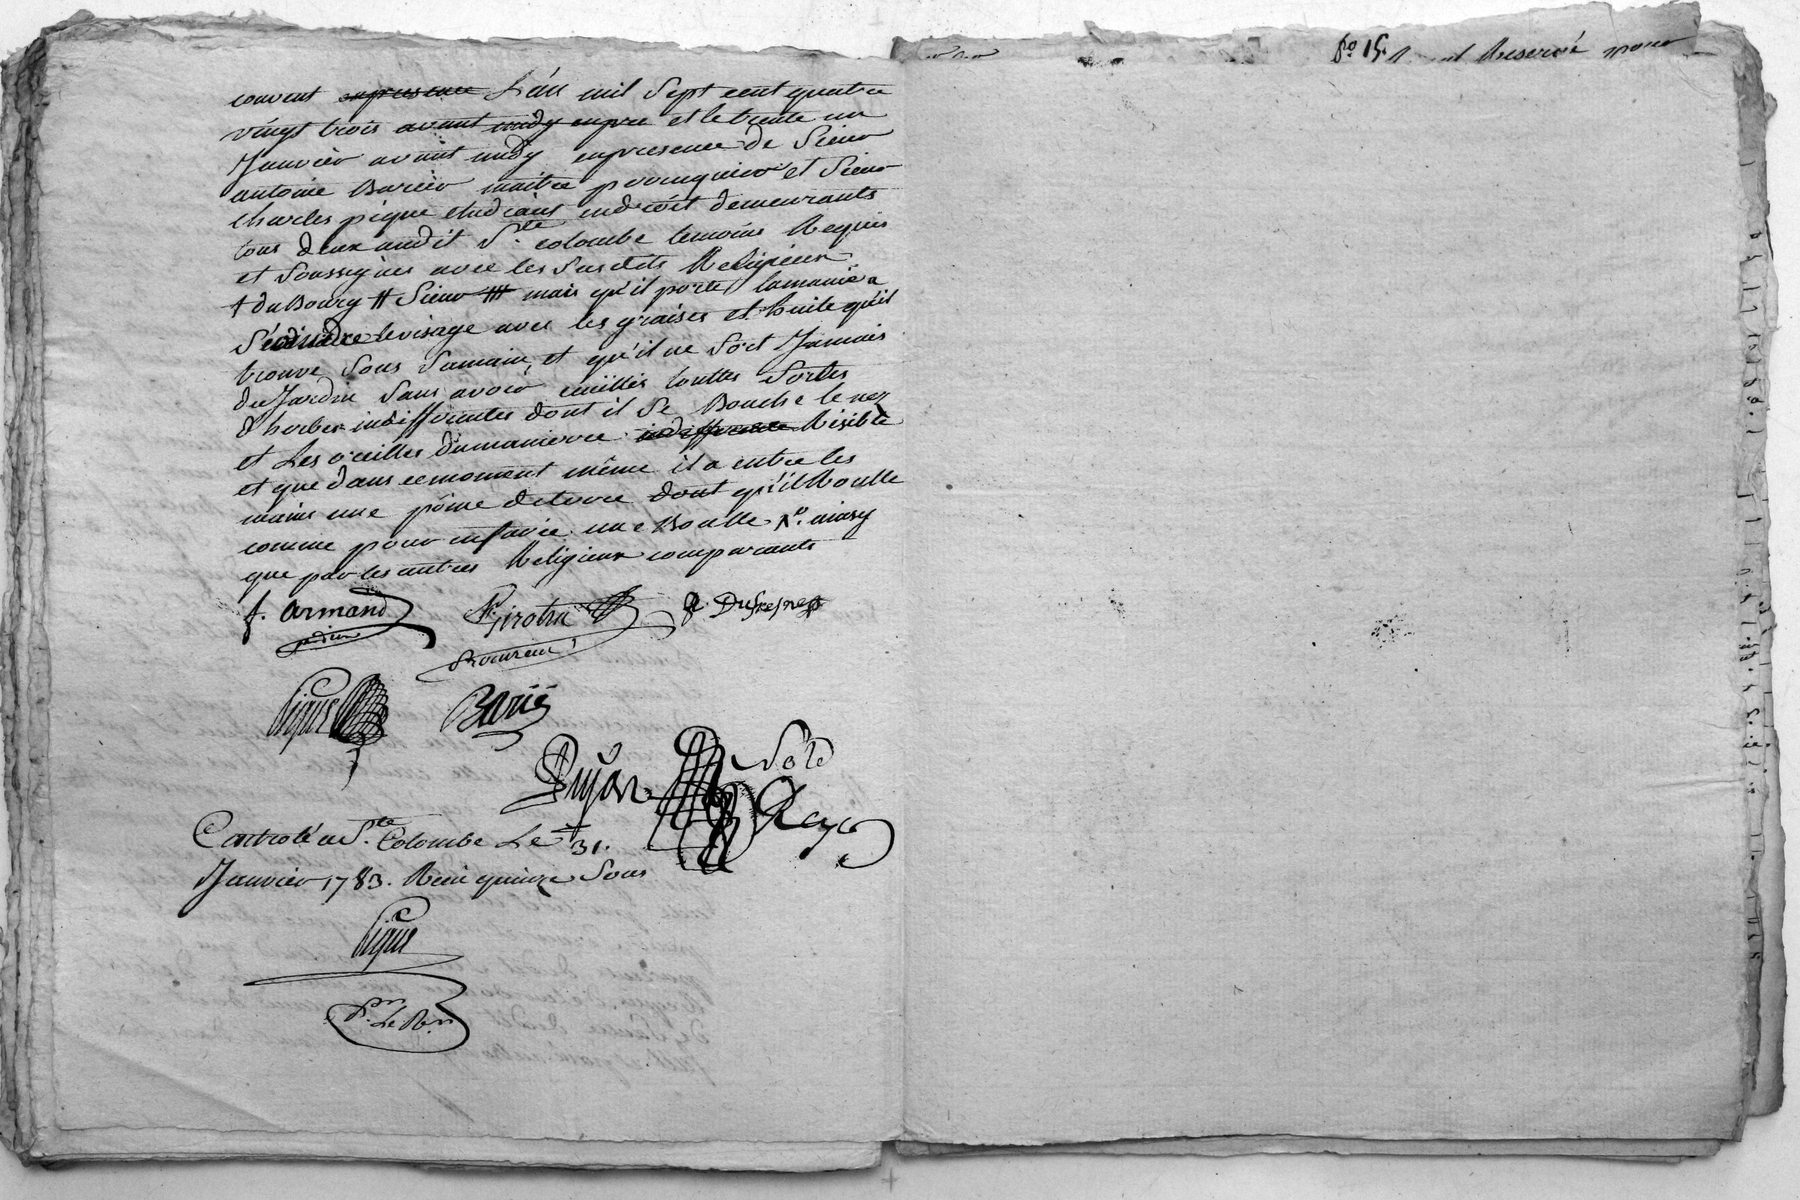 couvent enpresence L'an mil Sept cent quatre
vingt trois avant midy enpre et le trente un
Janvier avant midy enpresence de Sieur
antoine Barrier maitre perruquier et Sieur
charles pique etudiant endroit demeurants
tous deux audit Ste. colombe temoins Requis
et Soussignes avec les Susdits Religieux
† du Bourg # Sieur ## mais qu'il porte lamanie a
S'enduire levisage avec les graises et huile qu'il
trouve Sous Samain, et qu'il ne Sort Jamais
du Jardin Sans avoir cuillis touttes Sortes
d'herbes indifferentes dont il Se Bouche le nez
et Les oreilles dumanierre indifferente Risible
et que dans cemoment même il a entre les
mains une pome deterre dont qu'il Roulle
comme pour enfaire une Boulle
que par les autres Religieux comparants
f. armand
fr. girotin
f. Dufresne
procureur
Pique
Barié
Dujon
Controlé a Ste. Colombe Le 31.
Janvier 1783. Reçu quinze Sous
Pique
fo 15.
Reservé pour